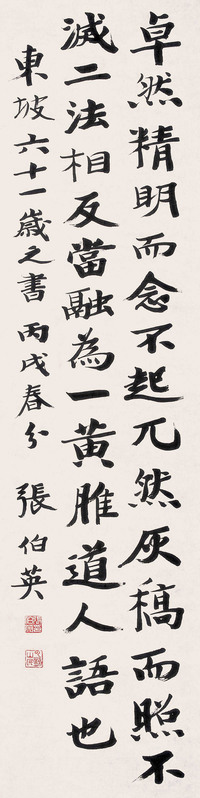 卓然精明而念不起兀然灰槁而照不
滅二法相反當融為一黃雎道人語也
東坡六十一歲之書 丙戌春分 張伯英